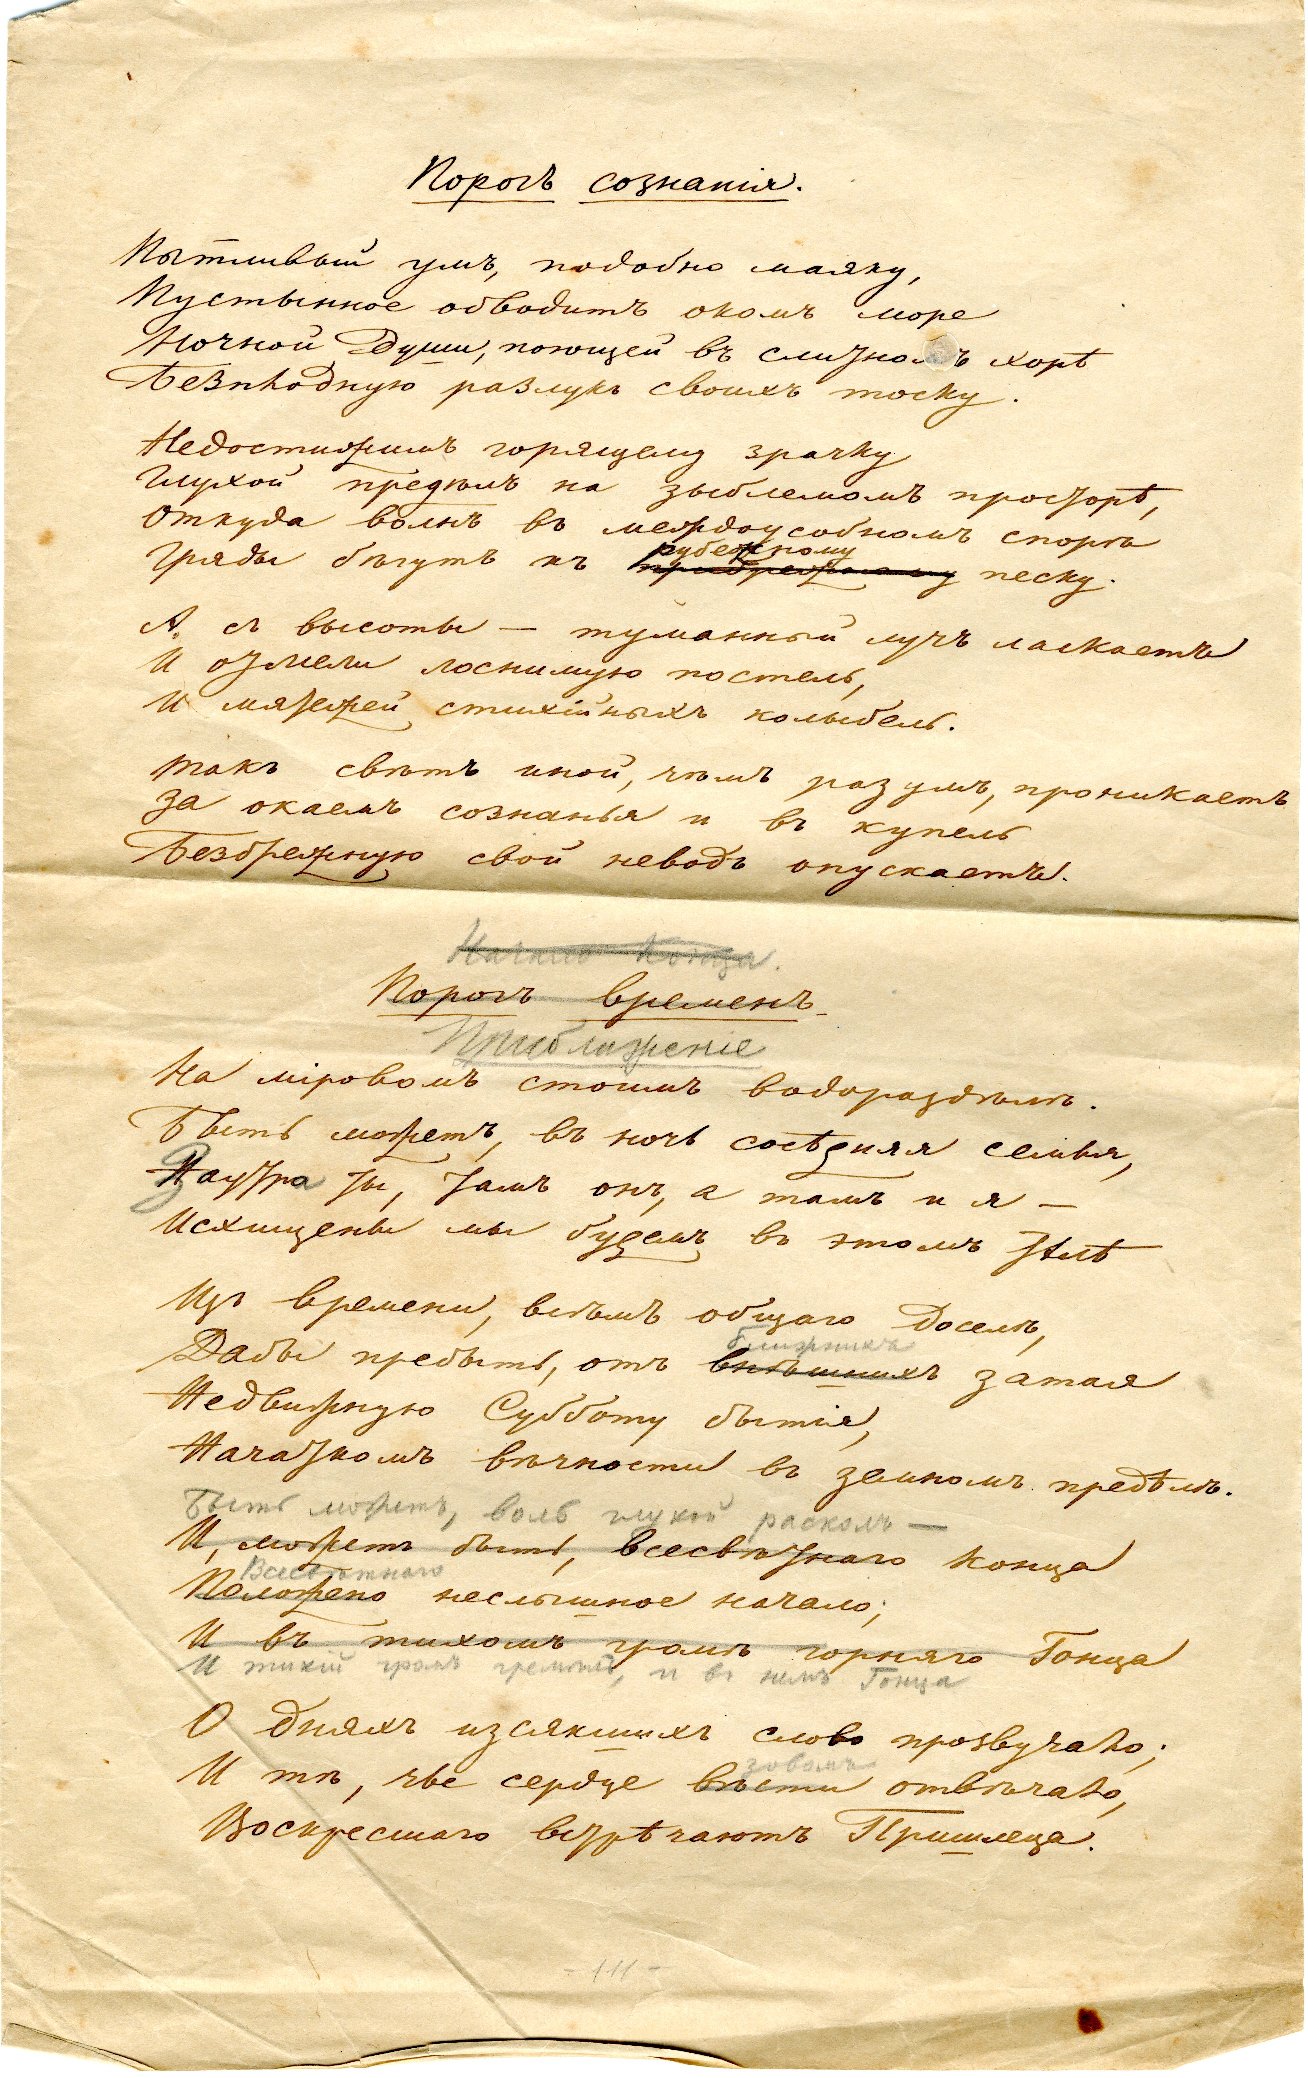 Порогъ сознанія.
Пытливый умъ, подобно маяку,
Пустынное обводитъ окомъ море
Ночной Души, поющей въ слитномъ хорѣ
Безплодную разлукъ своихъ тоску.
Недостижимъ горящему зрачку
Глухой предѣлъ на зыблемомъ просторѣ,
Откуда волнъ въ междоусобномъ спорѣ
рубежному
Гряды бѣгутъ къ прибрежному песку.
А съ высоты — туманный лучъ ласкаетъ
И отмели лоснимую постель,
И мятежей стихійныхъ колыбель.
Такъ свѣтъ иной, чѣмъ разумъ, проникаетъ
За окаемъ сознанья и въ купель
Безбрежную свой неводъ опускаетъ.
Начало Конца.
Порогъ временъ.
Приближеніе
На міровомъ стоимъ водораздѣлѣ.
Быть можетъ, въ ночь сосѣдняя семья,
Заутра ты, тамъ онъ, а тамъ и я —
Исхищены мы будемъ въ этомъ тѣлѣ
Изъ времени, всѣмъ общаго доселѣ,
ближнихъ
Дабы пребыть, отъ внѣшнихъ затая
Недвижную Субботу бытія,
Начаткомъ вѣчности въ земномъ предѣлѣ.
Быть можетъ, воль глухой расколъ —
И, можетъ быть, всесвѣтнаго конца
Всесвѣтнаго
Положено неслышное начало;
И въ тихомъ громѣ горняго Гонца
И тихій громъ гремитъ, и въ немъ Гонца
О дняхъ изсякшихъ слово прозвучало;
зовомъ
И тѣ, чье сердце вѣсти отвѣчало,
Воскресшаго встрѣчаютъ Пришлеца.
- 111 -